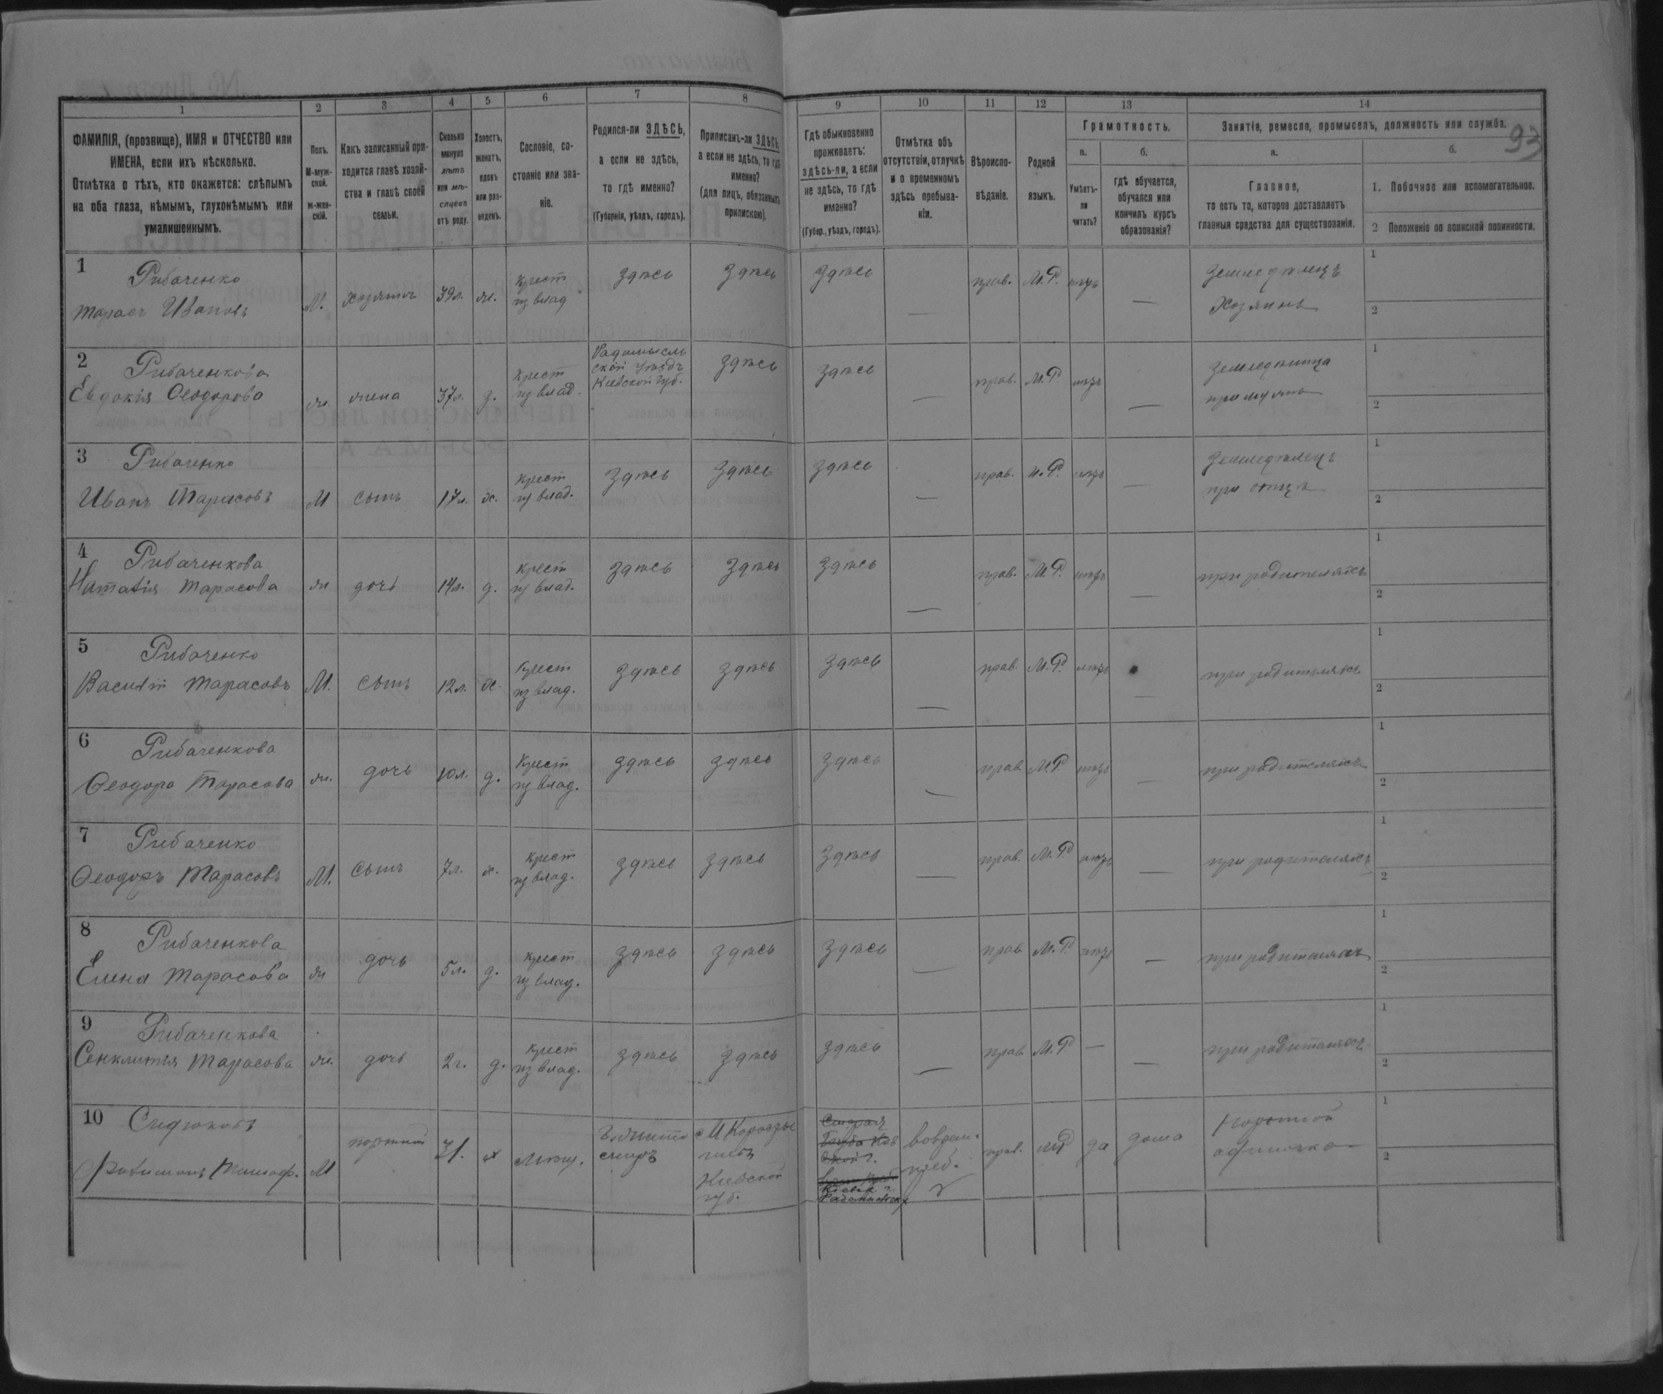 93
1 2 3 4 5 6 7 8 9 10 11 12 13 14
ФАМИЛІЯ, (прозвище), ИМЯ и ОТЧЕСТВО или
ИМЕНА, если ихъ нѣсколько.
Отмѣтка о тѣхъ, кто окажется: слѣпымъ
на оба глаза, нѣмымъ, глухонѣмымъ или
умалишеннымъ.
Полъ.
М-муж-
ской.
ж-жен-
скій.
Какъ записанный при-
ходится главѣ хозяй-
ства и главѣ своей
семьи.
Сколько
минуло
лѣтъ
или мѣ-
сяцевъ
отъ роду.
Холостъ,
женатъ,
вдовъ
или раз-
веденъ.
Сословіе, со-
стояніе или зва-
ніе.
Родился-ли ЗДѢСЬ,
а если не здѣсь,
то гдѣ именно?
(Губернія, уѣздъ, городъ).
Приписанъ-ли ЗДѢСЬ,
а если не здѣсь, то гдѣ
именно?
(для лицъ, обязанныхъ
припискою).
Гдѣ обыкновенно
проживаетъ:
здѣсь-ли, а если
не здѣсь, то гдѣ
именно?
(Губер., уѣздъ, городъ).
Отмѣтка объ
отсутствіи, отлучкѣ
и о временномъ
здѣсь пребыва-
ніи.
Вѣроиспо-
вѣданіе.
Родной
языкъ.
Грамотность.
а.
Умѣетъ-
ли
читать?
б.
гдѣ обучается,
обучался или
кончилъ курсъ
образованія?
Занятія, ремесло, промыселъ, должность или служба.
а.
Главное,
то есть то, которое доставляетъ
главныя средства для существованія.
б.
1. Побочное или вспомогательное.
2 Положеніе по воинской повинности.
1 Рибаченко
Тарасъ Ивановъ М. хозяинъ 39л. ж. крест. из влад. здѣсь здѣсь здѣсь — прав. М.Р. нѣтъ — Земледѣлецъ
Хозяинъ
1
2
2 Рибаченкова
Евдокія Феодорова ж. жена 37л. з. крест. из влад. Радомысль
ской уѣздъ
Кіевской губ. здѣсь здѣсь — прав. М.Р. нѣтъ — Земледѣлица
при мужѣ
1
2
3 Рибаченко
Иванъ Тарасовъ М сынъ 17л. х. крест. из влад. здѣсь здѣсь здѣсь — прав. М.Р. нѣтъ — Земледѣлецъ
при отцѣ
1
2
4 Рибаченкова
Наталія Тарасова ж дочь 14л. д. крест. из влад. здѣсь здѣсь здѣсь — прав. М.Р. нѣтъ — при родителяхъ
1
2
5 Рибаченко
Василій Тарасовъ М. сынъ 12л. х. крест. из влад. здѣсь здѣсь здѣсь — прав. М.Р. нѣтъ — при родителяхъ
1
2
6 Рибаченкова
Феодора Тарасова ж. дочь 10л. д. крест. из влад. здѣсь здѣсь здѣсь — прав М.Р нѣтъ — при родителяхъ
1
2
7 Рибаченко
Феодоръ Тарасовъ М. сынъ 7л. х. крест. из влад. здѣсь здѣсь здѣсь — прав. М.Р нѣтъ — при родителяхъ
1
2
8 Рибаченкова
Елена Тарасова ж дочь 5л. д. крест. из влад. здѣсь здѣсь здѣсь — прав М.Р. нѣтъ — при родителяхъ
1
2
9 Рибаченкова
Сенклитія Тарасова ж. дочь 2г. д. крест. из влад. здѣсь здѣсь здѣсь — прав М.Р — — при родителяхъ
1
2
10
М 21. х Кіевской
губ. прав. МР да дома
1
2